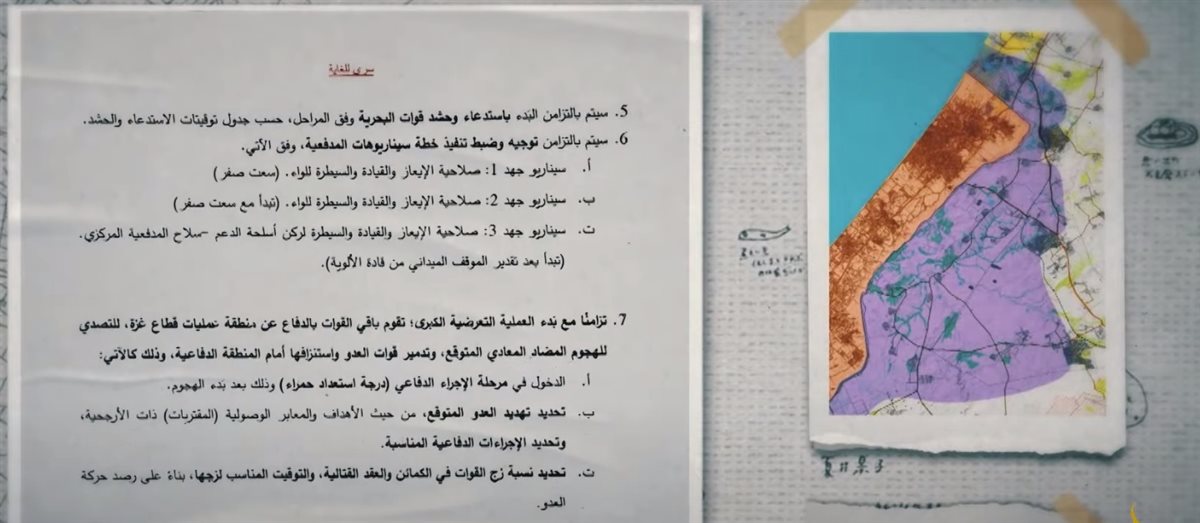 سري للغاية
5. سيتم بالتزامن البَدء باستدعاء وحشد قوات البحرية وفق المراحل، حسب جدول توقيتات الاستدعاء والحشد.
6. سيتم بالتزامن توجيه وضبط تنفيذ خطة سيناريوهات المدفعية، وفق الآتي.
أ. سيناريو جهد 1: صلاحية الإيعاز والقيادة والسيطرة للواء. (سعت صفر)
ب. سيناريو جهد 2: صلاحية الإيعاز والقيادة والسيطرة للواء. (تبدأ مع سعت صفر)
ت. سيناريو جهد 3: صلاحية الإيعاز والقيادة والسيطرة لركن أسلحة الدعم –سلاح المدفعية المركزي.
(تبدأ بعد تقدير الموقف الميداني من قادة الألوية).
7. تزامنًا مع بَدء العملية التعرضية الكبرى؛ تقوم باقي القوات بالدفاع عن منطقة عمليات قطاع غزة، للتصدي
للهجوم المضاد المعادي المتوقع، وتدمير قوات العدو واستنزافها أمام المنطقة الدفاعية، وذلك كالآتي:
أ. الدخول في مرحلة الإجراء الدفاعي (درجة استعداد حمراء) وذلك بعد بَدء الهجوم.
ب. تحديد تهديد العدو المتوقع، من حيث الأهداف والمعابر الوصولية (المقتربات) ذات الأرجحية،
وتحديد الإجراءات الدفاعية المناسبة.
ت. تحديد نسبة زج القوات في الكمائن والعقد القتالية، والتوقيت المناسب لزجها، بناءً على رصد حركة
العدو.